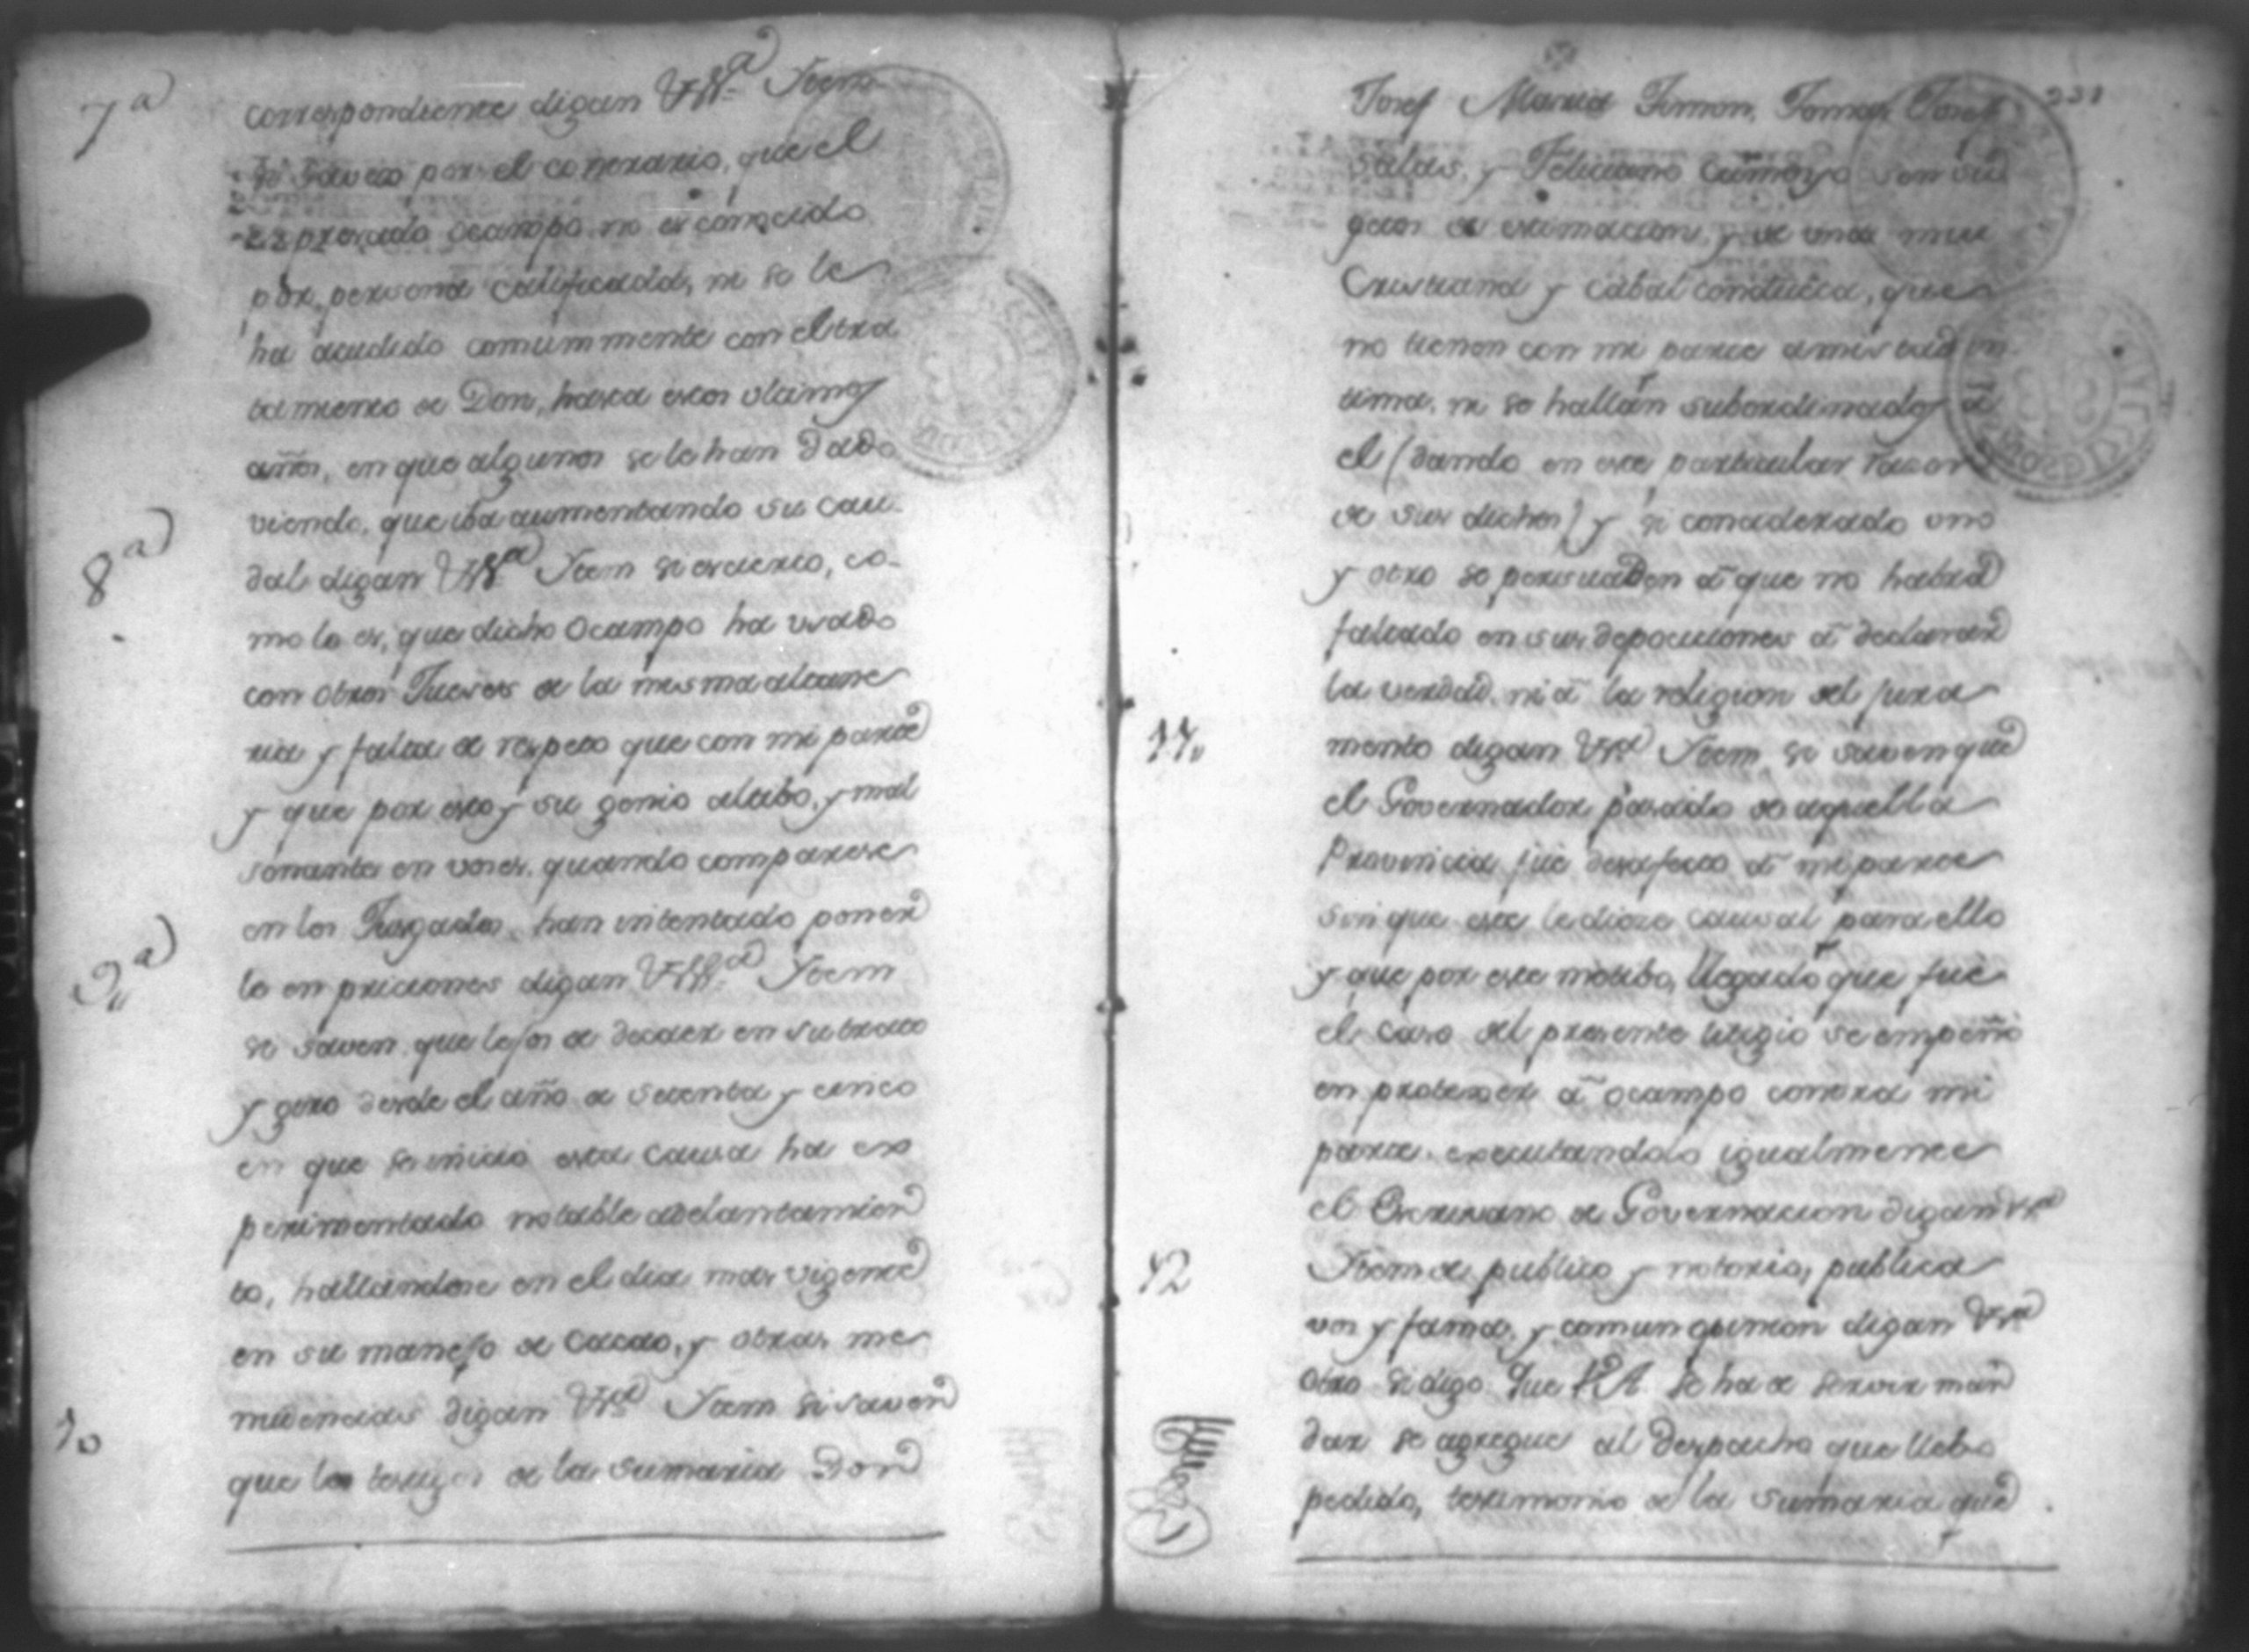 7ª
correspondiente digan Vssª Item
si saven por el contrario, que el
expresado Ocampo no es conocido
por persona calificada, ni se le
ha acudido comunmente con el tra
tamiento de Don, hasta estos ultimos
años, en que algunos se lo han dado
viendo, que iba aumentando su cau-
8ª
dal digan Vssª Item si es cierto, co-
mo lo es, que dicho Ocampo ha usado
con otros Jueses de la misma altane
ria y falta de respeto que con mi parte
y que por esto y su genio altibo, y mal
sonante en voses, quando comparese
en los Jusgados, han intentado poner
9ª
lo en priciones digan Vssª Item
si saven que lejos de decaer en su trato
y giro desde el año de setenta y cinco
en que se inicio esta causa ha ex
perimentado notable adelantamien
to, hallandose en el dia mas vigente
en su manejo de Cacao, y otras me
nudencias digan Vsª Item si saven
10
que los testigos de la sumaria Don
331
Josef Maria Simon, Tomas Josef
Salas, y Feliciano son su
getos de estimacion y de una mui
Cristiana y cabal conducta, que
no tienen con mi parte amistad in
tima, ni se hallan subordinados a
el (dando en este particular rason
de sus dichos) y si considerado uno
y otro se persuaden á que no habrá
faltado en sus deposiciones á declarar
la verdad, ni á la religion del jura
11.
mento digan Vsª Item si saven que
el Governador pasado de aquella
Provincia fue desafecto á mi parte
sin que este le diese causal para ello
y que por este motibo, llegado que fue
el caso del presente litigio se empeñó
en proteger á Ocampo contra mi
parte executandolo igualmente
el Escrivano de Governacion digan Vsª
12
Item de publico y notorio, publica
vos y fama, y comun opinion digan Vsª
Otro si digo: Que V.A. se ha de servir man
dar se agregue al Despacho que llebo
pedido, testimonio de la sumaria que